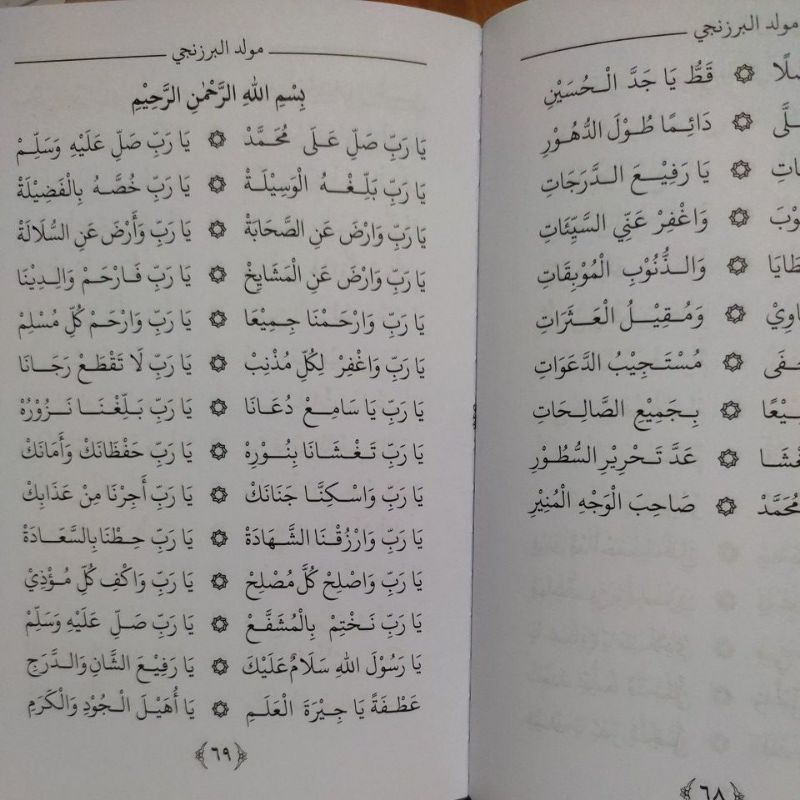 مولد البرزنجي
قَطُّ يَا جَدَّ الْحُسَيْنِ
دَائِمًا طُوْلَ الدُّهُوْرِ
يَا رَفِيْعَ الدَّرَجَاتِ
وَاغْفِرْ عَنِّي السَّيِّئَاتِ
وَالذُّنُوْبِ الْمُوْبِقَاتِ
وَمُقِيْلُ الْعَثَرَاتِ
مُسْتَجِيْبُ الدَّعَوَاتِ
بِجَمِيْعِ الصَّالِحَاتِ
عَدَّ تَحْرِيْرِ السُّطُوْرِ
مُحَمَّدْ ۞ صَاحِبَ الْوَجْهِ الْمُنِيْرِ
﴿٦٨﴾
مولد البرزنجي
بِسْمِ اللهِ الرَّحْمٰنِ الرَّحِيْمِ
يَا رَبِّ صَلِّ عَلَى مُحَمَّدْ ۞ يَا رَبِّ صَلِّ عَلَيْهِ وَسَلِّمْ
يَا رَبِّ بَلِّغْهُ الْوَسِيْلَةْ ۞ يَا رَبِّ خُصَّهُ بِالْفَضِيْلَةْ
يَا رَبِّ وَارْضَ عَنِ الصَّحَابَةْ ۞ يَا رَبِّ وَأَرْضَ عَنِ السُّلَالَةْ
يَا رَبِّ وَارْضَ عَنِ الْمَشَايِخْ ۞ يَا رَبِّ فَارْحَمْ وَالِدِيْنَا
يَا رَبِّ وَارْحَمْنَا جَمِيْعَا ۞ يَا رَبِّ وَارْحَمْ كُلِّ مُسْلِمْ
يَا رَبِّ وَاغْفِرْ لِكُلِّ مُذْنِبْ ۞ يَا رَبِّ لَا تَقْطَعْ رَجَانَا
يَا رَبِّ يَا سَامِعْ دُعَانَا ۞ يَا رَبِّ بَلِّغْنَا نَزُوْرُهْ
يَا رَبِّ تَغْشَانَا بِنُوْرِهْ ۞ يَا رَبِّ حَفْظَانَكْ وَأَمَانَكْ
يَا رَبِّ وَاسْكِنَّا جَنَانَكْ ۞ يَا رَبِّ أَجِرْنَا مِنْ عَذَابِكْ
يَا رَبِّ وَارْزُقْنَا الشَّهَادَةْ ۞ يَا رَبِّ حِطْنَا بِالسَّعَادَةْ
يَا رَبِّ وَاصْلِحْ كُلَّ مُصْلِحْ ۞ يَا رَبِّ وَاكْفِ كُلِّ مُؤْذِيْ
يَا رَبِّ نَخْتِمْ بِالْمُشَفَّعْ ۞ يَا رَبِّ صَلِّ عَلَيْهِ وَسَلِّمْ
يَا رَسُوْلَ اللهِ سَلَامٌ عَلَيْكَ ۞ يَا رَفِيْعَ الشَّانِ وَالدَّرَجِ
عَطْفَةً يَا جِيْرَةَ الْعَلَمِ ۞ يَا أُهَيْلَ الْجُوْدِ وَالْكَرَمِ
﴿٦٩﴾